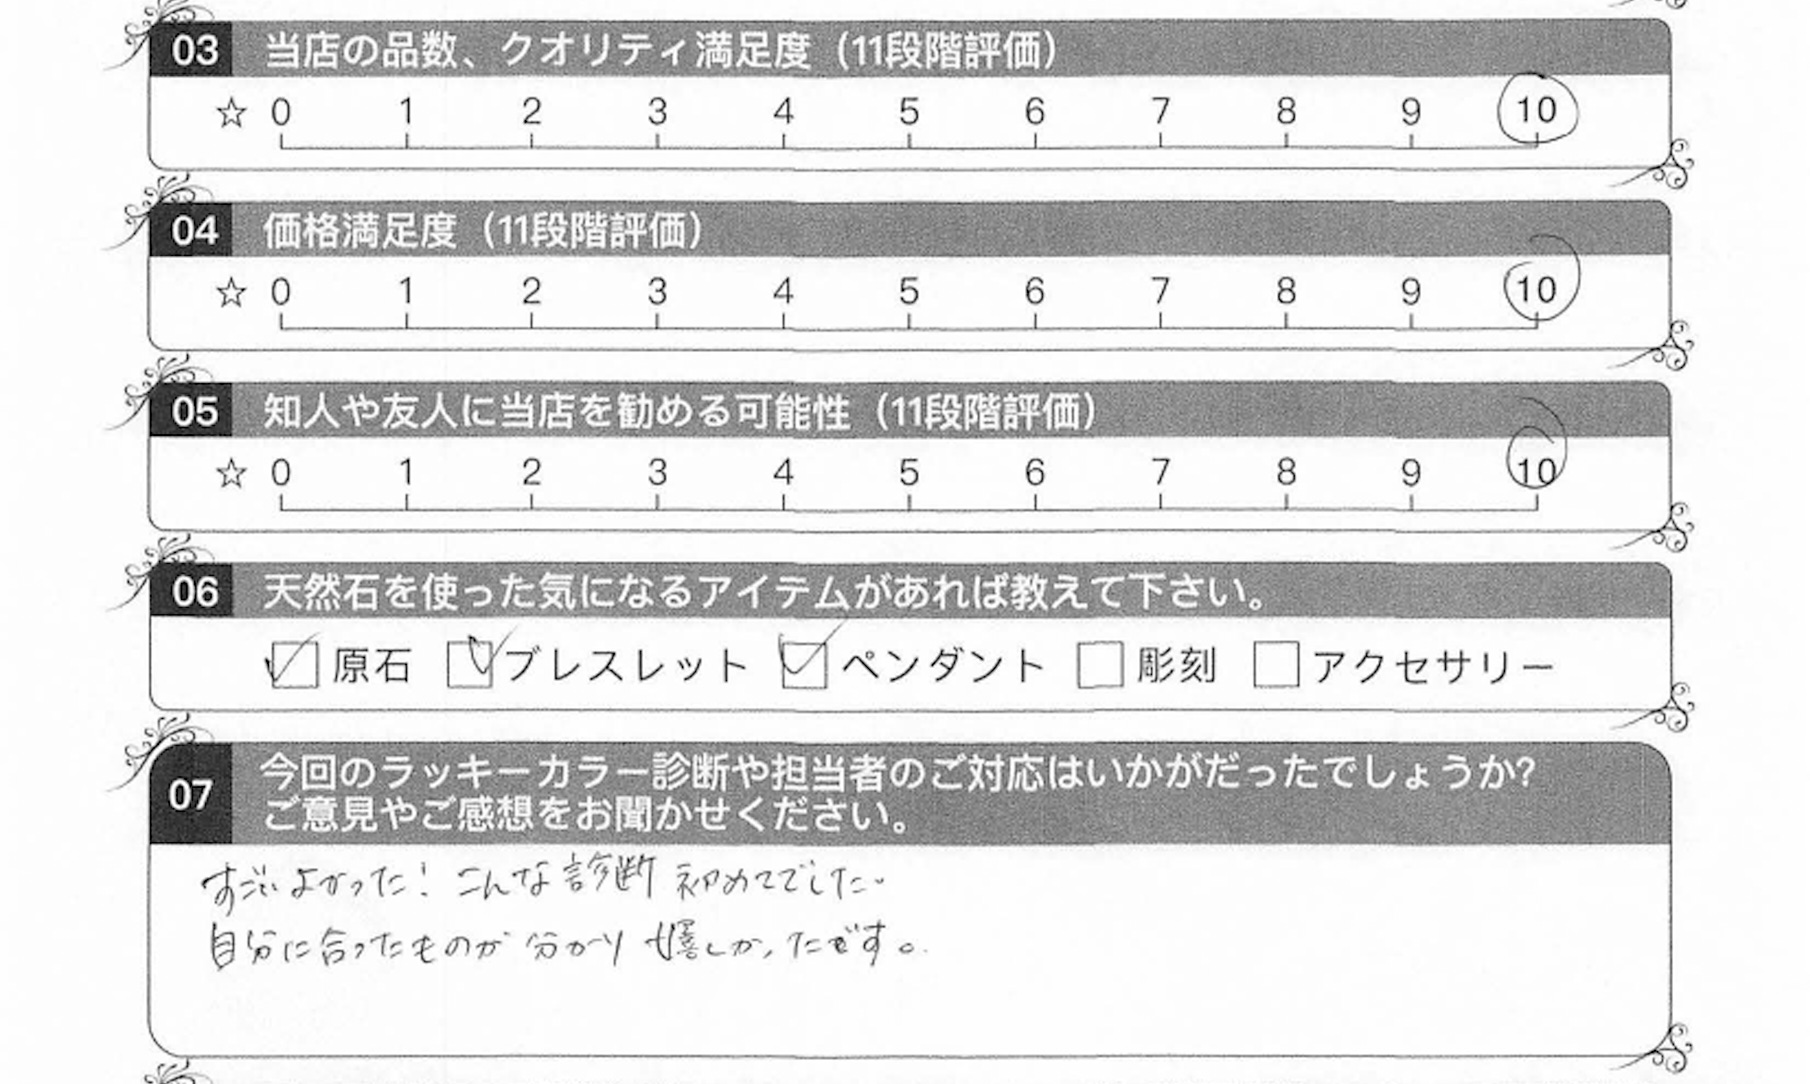 03 当店の品数、クオリティ満足度（11段階評価）
☆ 0 1 2 3 4 5 6 7 8 9 10
04 価格満足度（11段階評価）
☆ 0 1 2 3 4 5 6 7 8 9 10
05 知人や友人に当店を勧める可能性（11段階評価）
☆ 0 1 2 3 4 5 6 7 8 9 10
06 天然石を使った気になるアイテムがあれば教えて下さい。
原石 ブレスレット ペンダント 彫刻 アクセサリー
07 今回のラッキーカラー診断や担当者のご対応はいかがだったでしょうか?
ご意見やご感想をお聞かせください。
すごいよかった！こんな診断初めてでした。
自分に合ったものが分かり嬉しかったです。